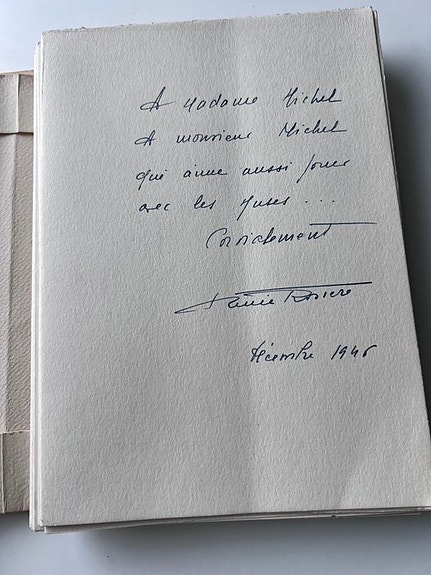 A Madame Michel
A monsieur Michel
qui aime aussi jouer
avec les Muses . . .
Cordialement
Décembre 1946